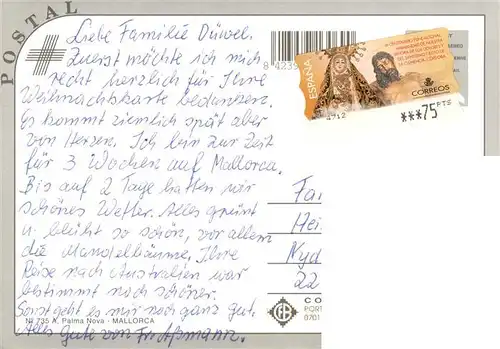 POSTAL
Liebe Familie Düwel.
Zuerst möchte ich mich
recht herzlich für Ihre
Weihnachtskarte bedanken.
Es kommt ziemlich spät aber
von Herzen. Ich bin zur Zeit
für 3 Wochen auf Mallorca.
Bis auf 2 Tage hatten wir
schönes Wetter. Alles grünt
u. blüht so schön, vor allem
die Mandelbäume. Ihre
Reise nach Australien war
bestimmt noch schöner.
Sonst geht es mir noch ganz gut.
Alles Gute von Fr. Aßmann.
Nº 735 A, Palma Nova - MALLORCA
ESPAÑA
CORREOS
***75 PTS
4712
Fa
Hei
Nyd
22
CO
POR
0701